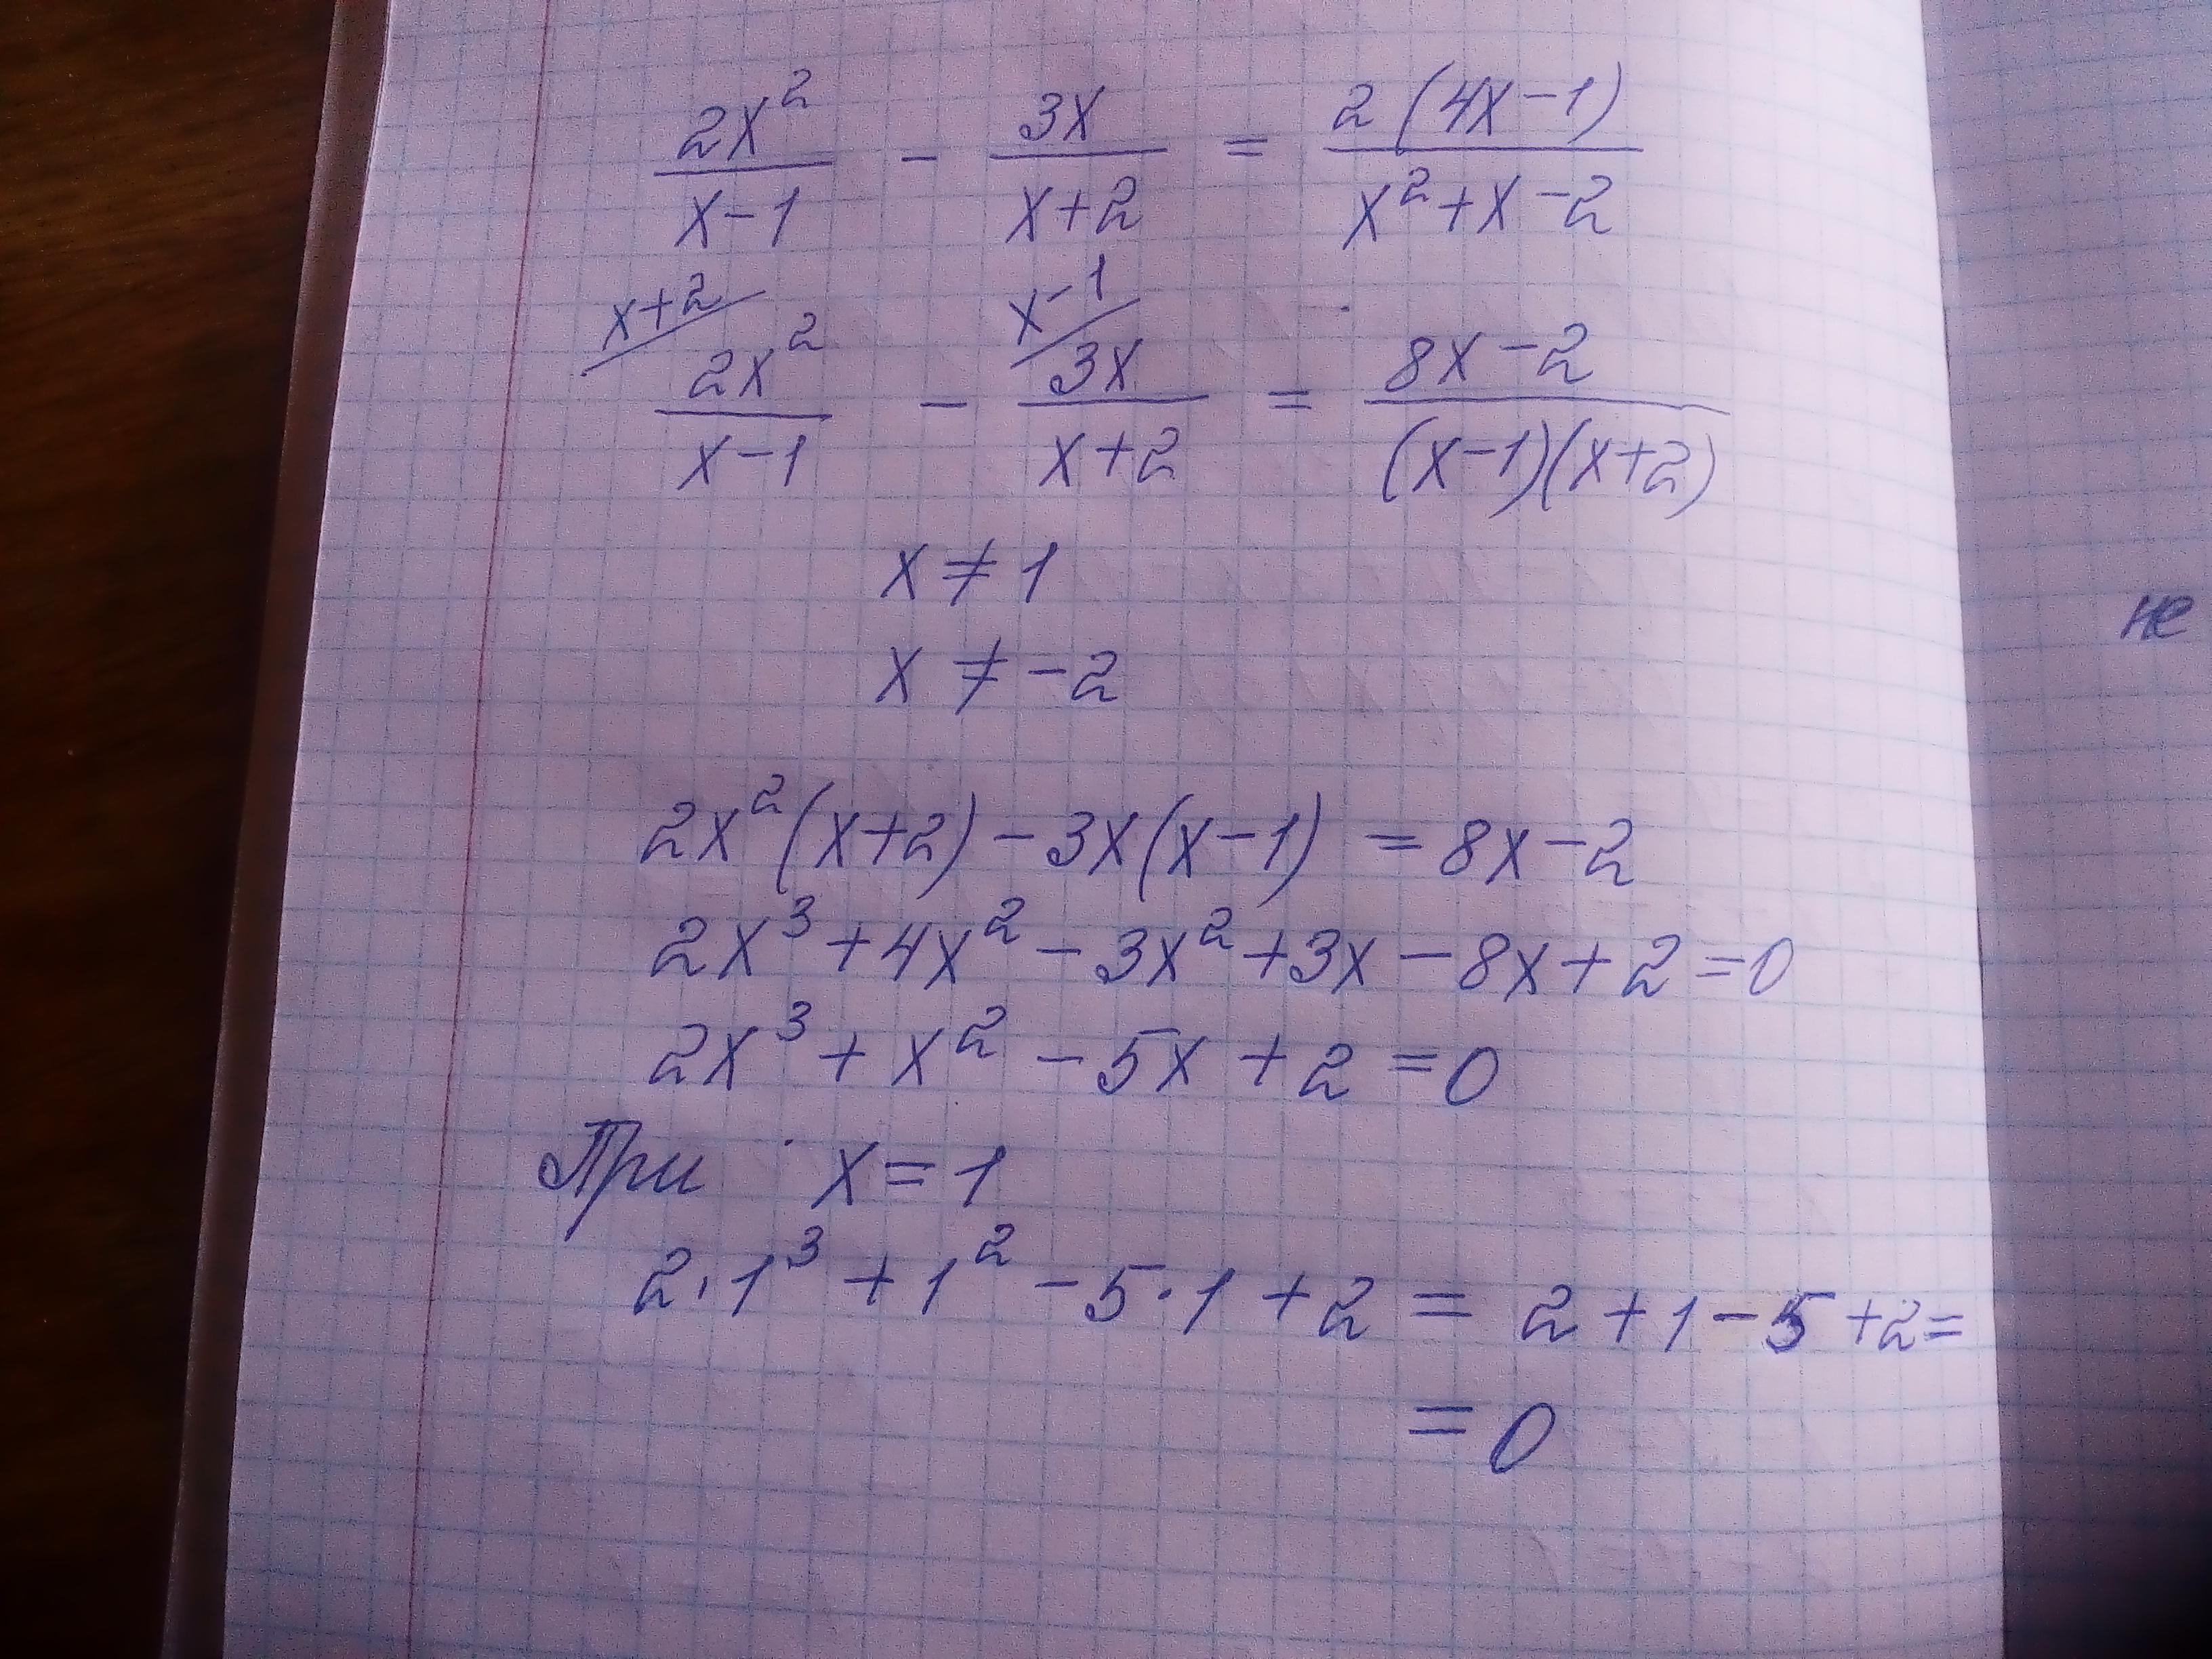 2x²/(x-1) - 3x/(x+2) = 2(4x-1)/(x²+x-2)
x+2/ 2x²/(x-1) - x-1/ 3x/(x+2) = (8x-2)/((x-1)(x+2))
x ≠ 1
не
x ≠ -2
2x²(x+2) - 3x(x-1) = 8x-2
2x³ + 4x² - 3x² + 3x - 8x + 2 = 0
2x³ + x² - 5x + 2 = 0
При x = 1
2·1³ + 1² - 5·1 + 2 = 2 + 1 - 5 + 2 =
= 0